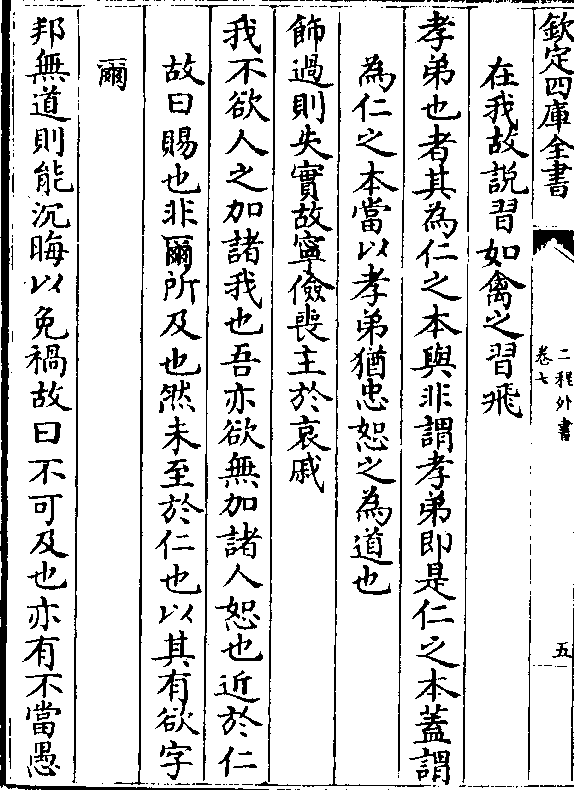 欽定四庫全書
二程外書
卷七
五
在我故説習如禽之習飛
孝弟也者其為仁之本與非謂孝弟即是仁之本蓋謂
為仁之本當以孝弟猶忠恕之為道也
飾過則失實故寧儉喪主於哀戚
我不欲人之加諸我也吾亦欲無加諸人恕也近於仁
故曰賜也非爾所及也然未至於仁也以其有欲字
爾
邦無道則能沉晦以免禍故曰不可及也亦有不當愚